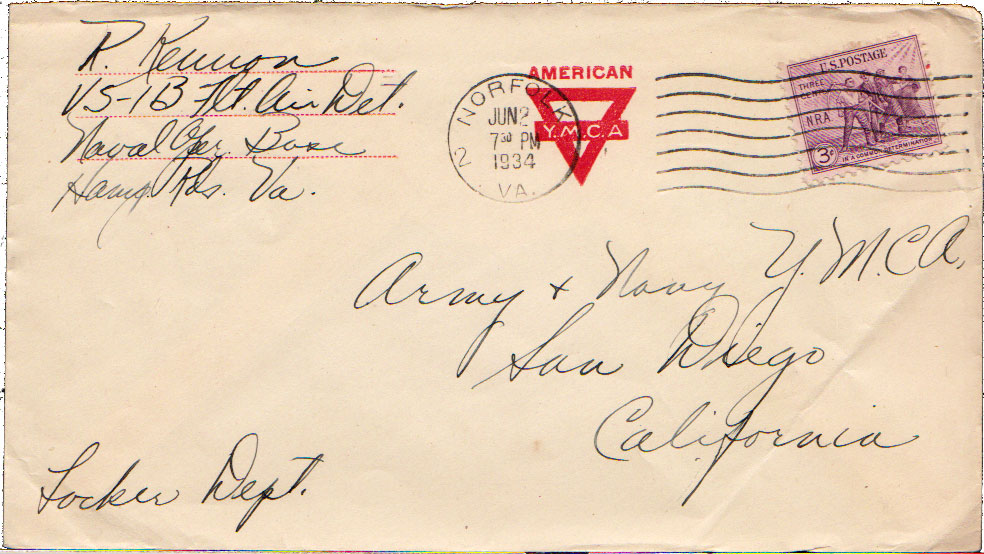 R. Kennon
VS-1B Flt. Air Det.
Naval Opr. Base
Hamp. Rds. Va.
NORFOLK
JUN 2
7 30 PM
1934
VA.
2
AMERICAN
Y.M.C.A
U.S. POSTAGE
THREE
NRA
3¢
IN A COMMON DETERMINATION
Army + Navy Y.M.C.A.
San Diego
California
Locker Dept.